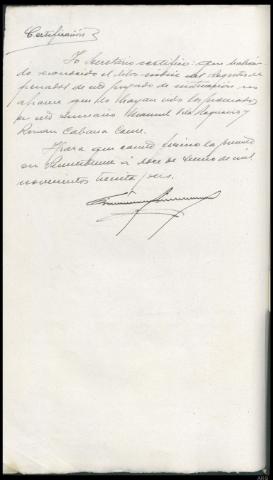 Certificación
Yo Secretario certifico: que habien
do examinado el libro índice del registro de
penados de este Juzgado de instrucción no
aparece que lo hayan sido los procesados
en este sumario Manuel
Román Cabana Cane.
Para que conste firmo la presente
en a doce de Junio de mil
novecientos treinta y seis.